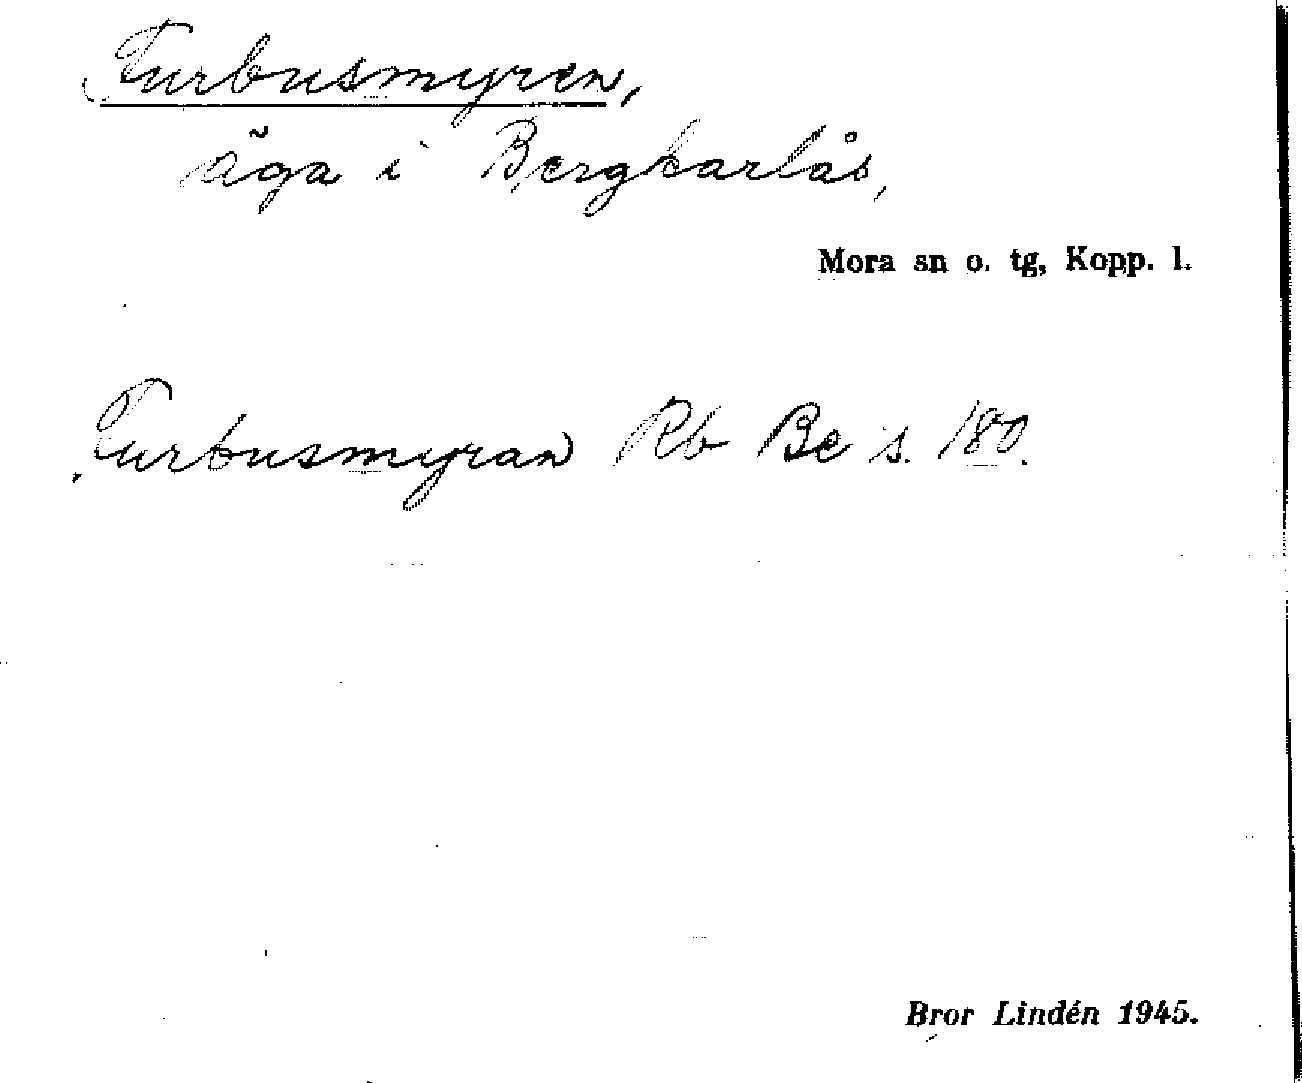 Turbusmyren,
äga i Bergkarlås,
Mora sn o. tg, Kopp. l.
Turbusmyran Rb Be s. 180.
Bror Lindén 1945.